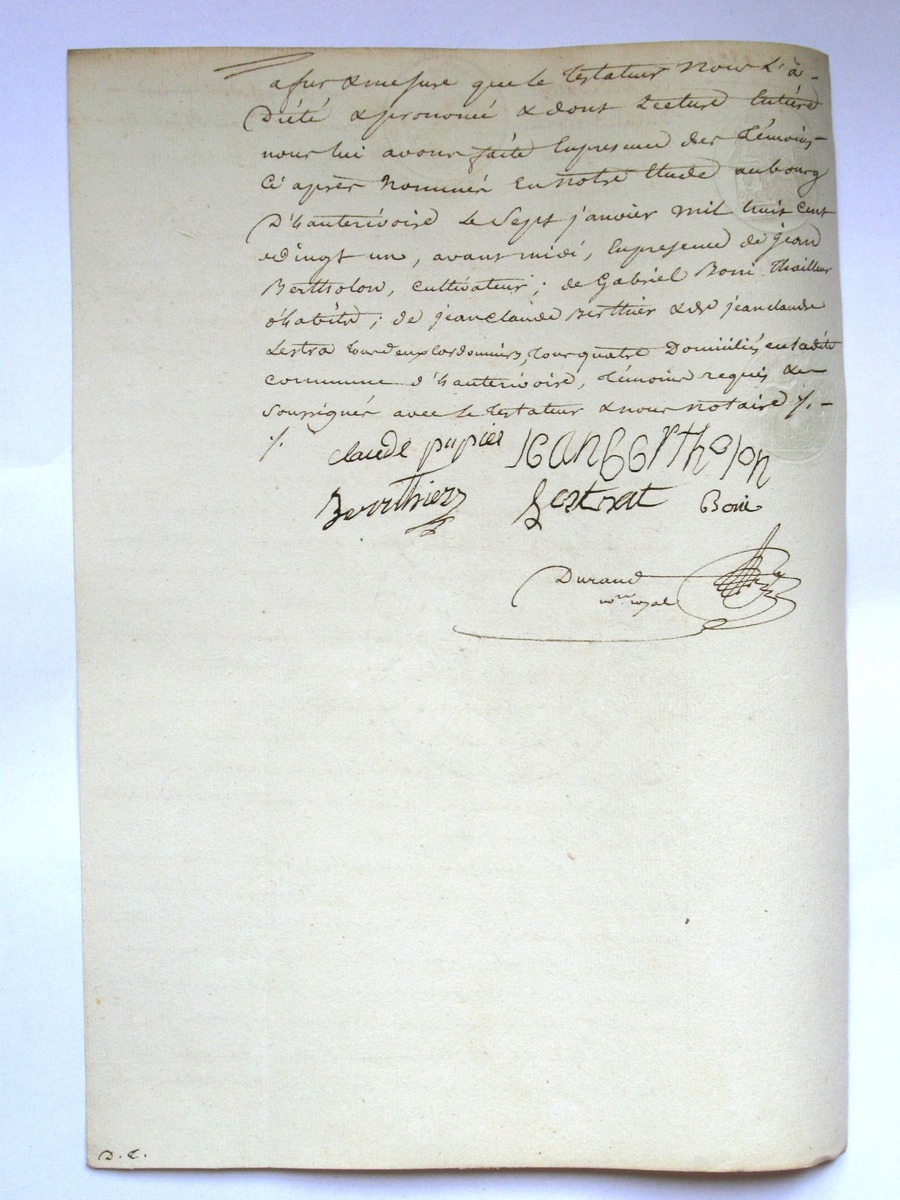 afur & mesure que le testateur nous l'à-
Dicté & prononcé & dont Lecture Entière
nous lui avons faite En presence des témoins
Ci après Nommés En notre Etude au bourg
D'hauterivoire Le Sept janvier mil huit cent
vingt un, avant midi, En presence de jean
Bertholon, cultivateur; de Gabriel Boni Thailleur
d'habits; de jean claude Berthier & de jean claude
Lestra tous deux Cordonniers, tous quatre Domiciliés en ladite
commune d'hauterivoire, témoins requis &
soussignés avec le testateur & nous notaire ./. –
./. claude pupier JEAN bertholon
Berthier Lestrat Boni
Durand
nre. royal
D. C.